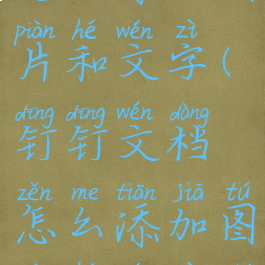 piàn hé wén zì
片和文字(
dīng dīng wén dàng
钉钉文档
zěn me tiān jiā tú
怎么添加图